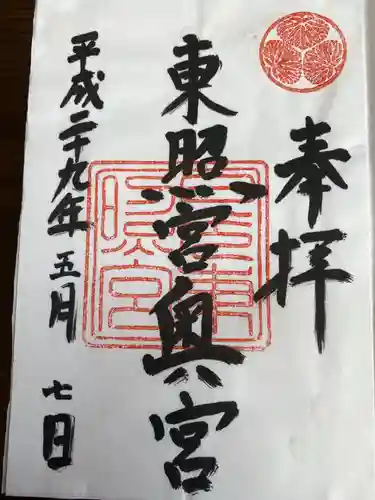 奉拝
東照宮奥宮
平成二十九年五月七日